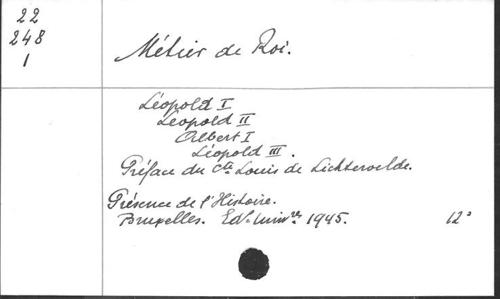 22
248
1
Métier de Roi.
Léopold I
Léopold II
Albert I
Léopold III.
Préface du Cte Louis de Lichtervelde.
Présence de l'Histoire.
Bruxelles. Ed. Univ.res 1945. 12°